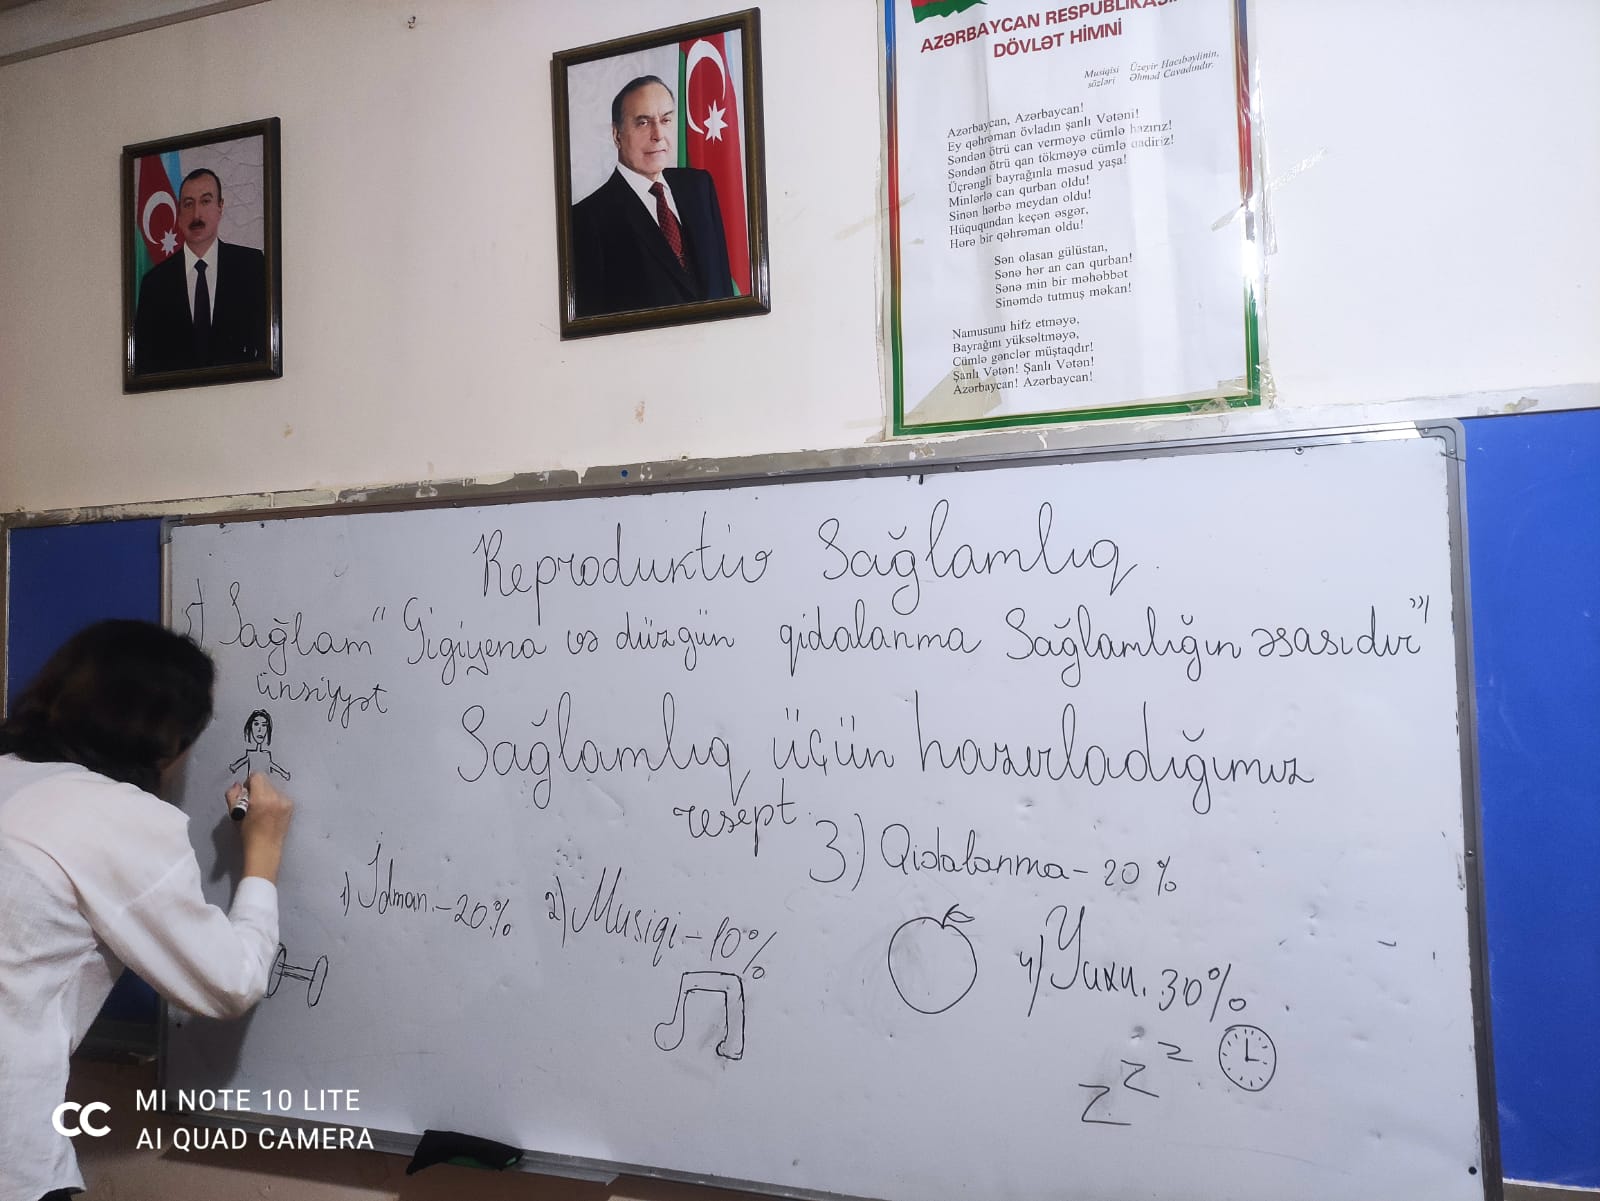 AZƏRBAYCAN RESPUBLİKASI
DÖVLƏT HİMNİ
Musiqisi Üzeyir Hacıbəylinin,
sözləri Əhməd Cavadındır.
Azərbaycan, Azərbaycan!
Ey qəhrəman övladın şanlı Vətəni!
Səndən ötrü can verməyə cümlə hazırız!
Səndən ötrü qan tökməyə cümlə qadiriz!
Üçrəngli bayrağınla məsud yaşa!
Minlərlə can qurban oldu!
Sinən hərbə meydan oldu!
Hüququndan keçən əsgər,
Hərə bir qəhrəman oldu!
Sən olasan gülüstan,
Sənə hər an can qurban!
Sənə min bir məhəbbət
Sinəmdə tutmuş məkan!
Namusunu hifz etməyə,
Bayrağını yüksəltməyə,
Cümlə gənclər müştaqdır!
Şanlı Vətən! Şanlı Vətən!
Azərbaycan! Azərbaycan!
Reproduktiv Sağlamlıq
5) Sağlam "Gigiyena və düzgün qidalanma Sağlamlığın əsasıdır"
ünsiyyət
Sağlamlıq üçün hazırladığımız
resept
1) İdman.-20% 2) Musiqi-10% 3) Qidalanma-20%
4) Yuxu. 30%
z z z
MI NOTE 10 LITE
AI QUAD CAMERA